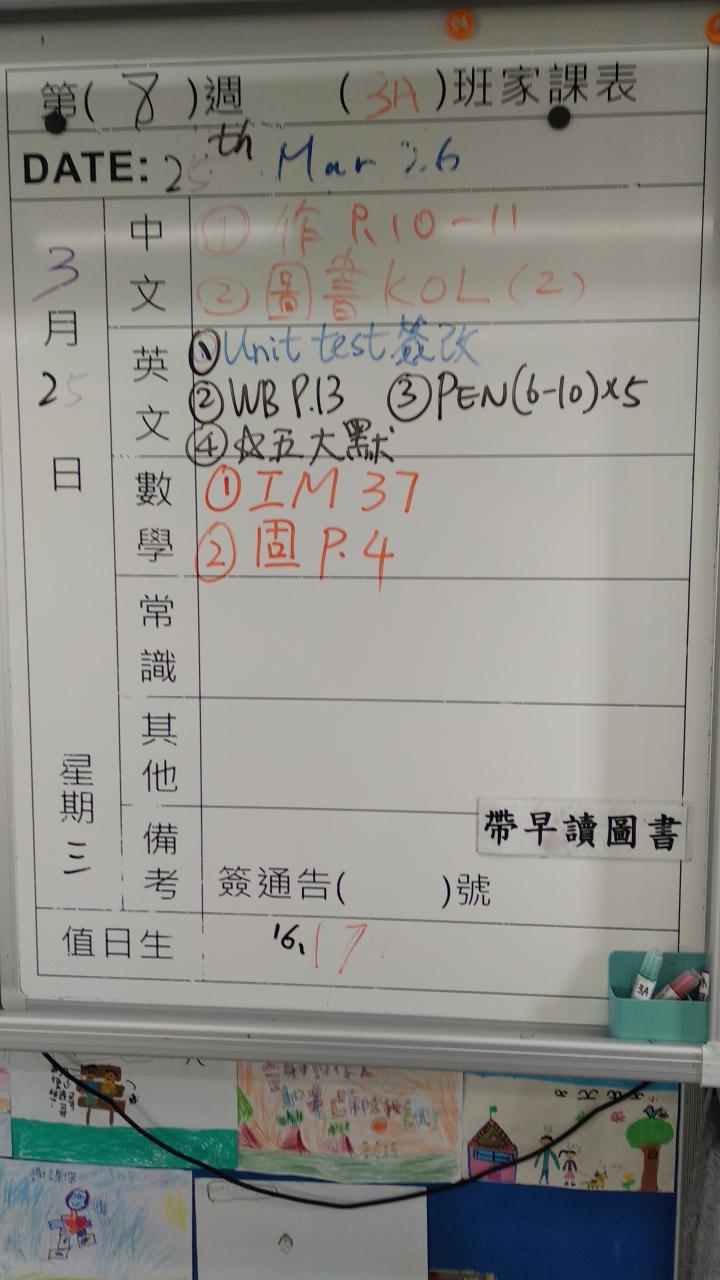 第( 8 )週 ( 3A )班家課表
DATE: 25th Mar 26
3月25日 星期三
中文
① 作 P.10-11
② 圖書 KOL (2)
英文
① Unit test 簽改
② WB P.13 ③ PEN(6-10)×5
④ ☆五大默
數學
① IM 37
② 固 P.4
常識
其他
帶早讀圖書
備考
簽通告( )號
值日生 16, 17
3A